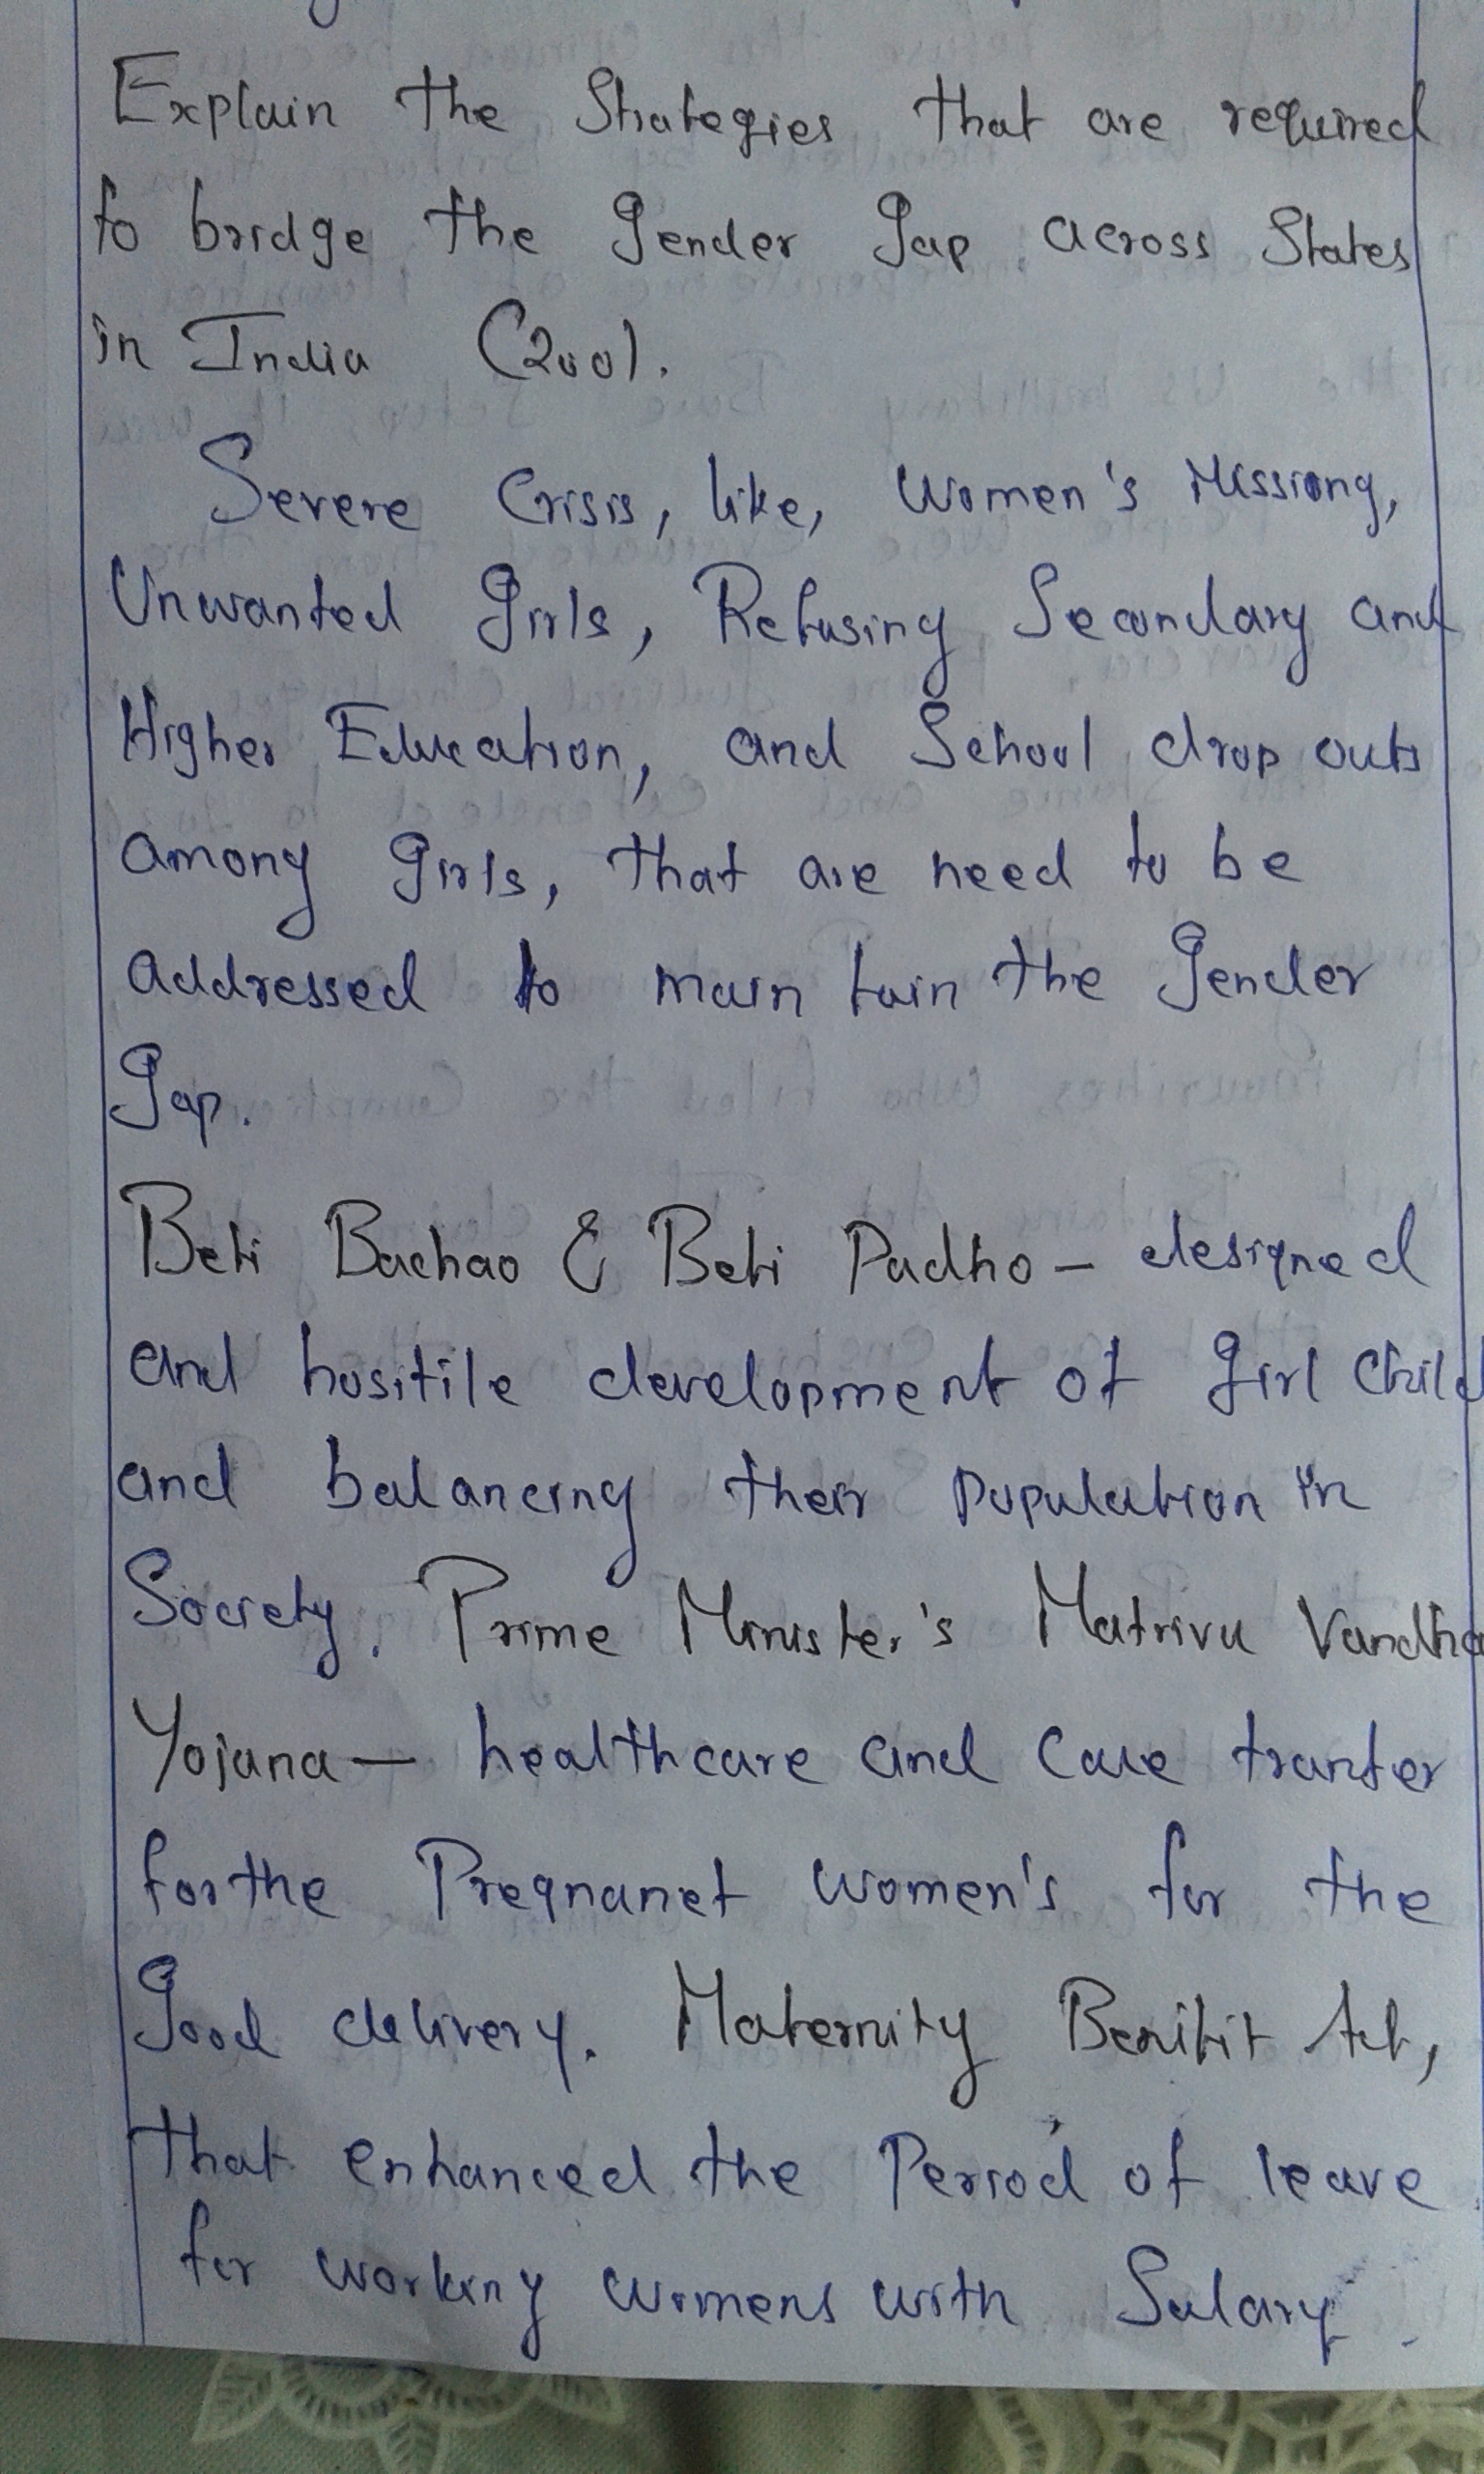 Explain the Strategies that are required
to bridge the Gender Gap across States
in India (200).
Severe Crisis, like, Women's Missiong,
Unwanted Girls, Refusing Secondary and
Higher Education, and School drop outs
among Girls, that are need to be
addressed to main tain the Gender
Gap.
Beti Bachao & Beti Padho - designed
and hositile development of Girl Child
and balancing their population in
Society. Prime Minister's Matriva Vandha
Yojana - healthcare and Care tranfer
for the Pregnanet women's for the
Good delivery. Maternity Benifit Act,
that enhanced the Period of leave
for working womens with Salary.